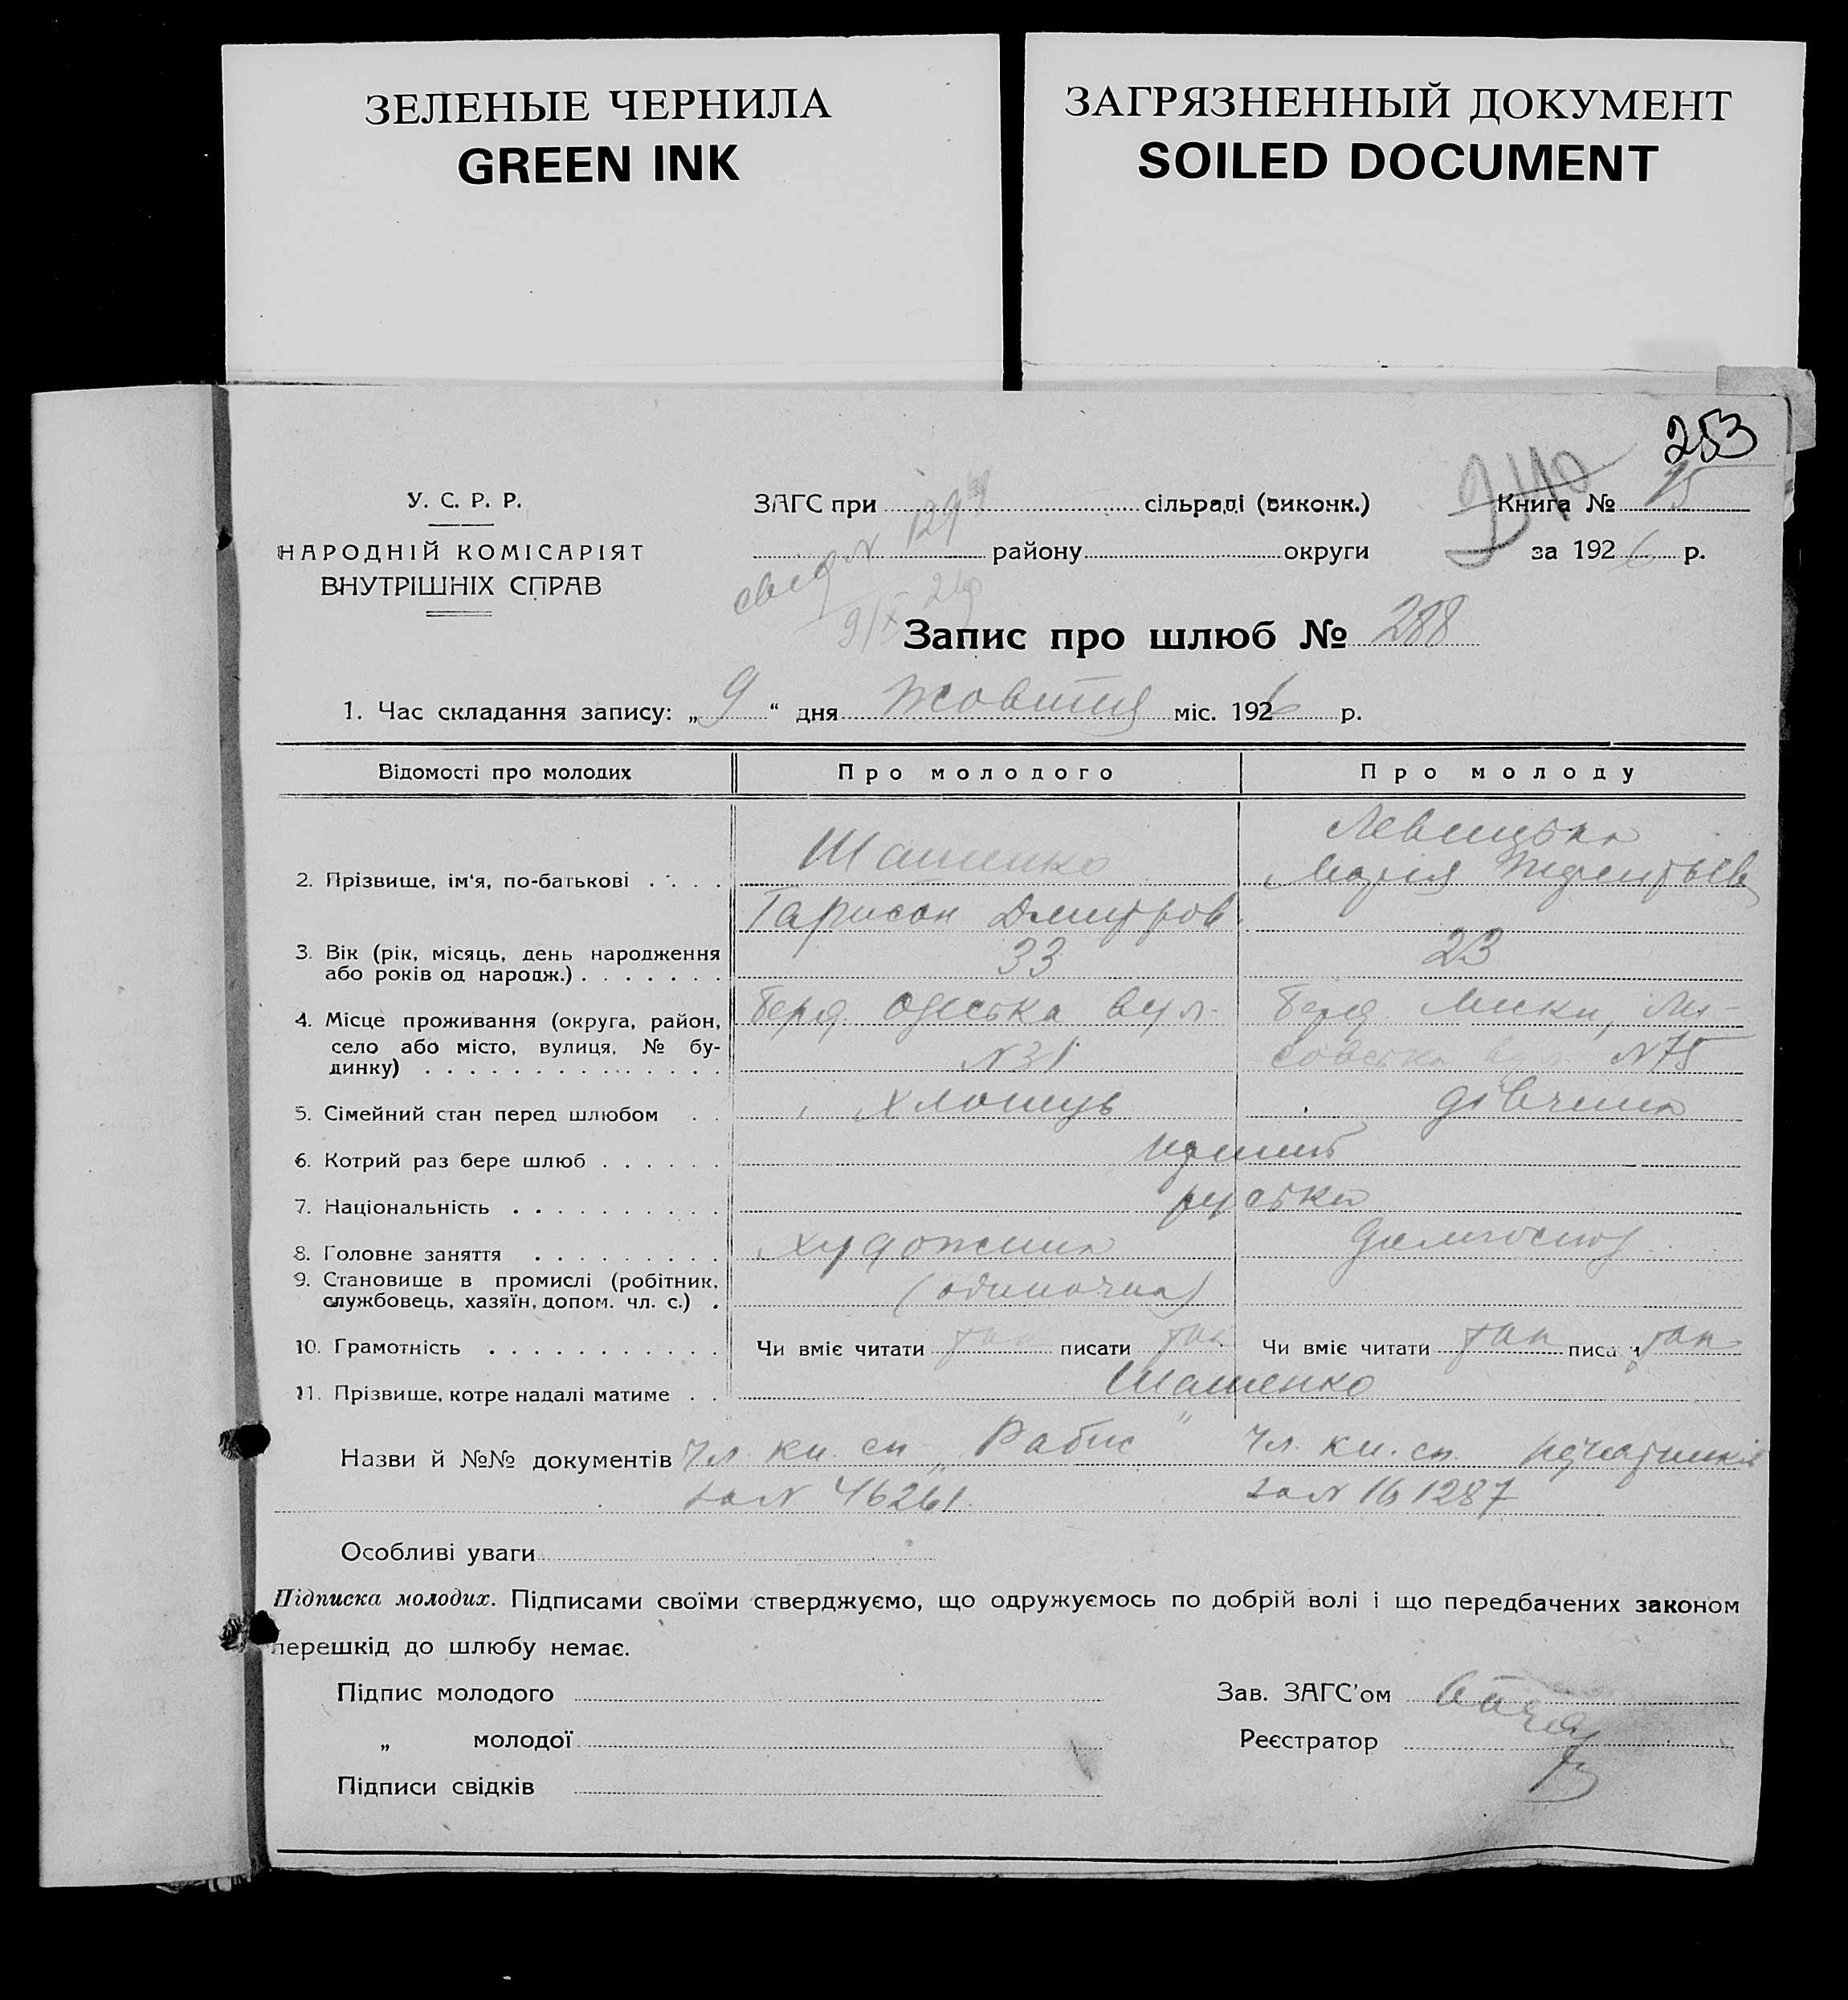 ЗЕЛЕНЫЕ ЧЕРНИЛА
GREEN INK
ЗАГРЯЗНЕННЫЙ ДОКУМЕНТ
SOILED DOCUMENT
253
240
У. С. Р. Р.
НАРОДНІЙ КОМІСАРІЯТ
ВНУТРІШНІХ СПРАВ
ЗАГС при сільраді (виконк.)
району округи
Книга № 15
за 1926 р.
Запис про шлюб № 288
1. Час складання запису: „9“ дня Жовтня міс. 1926 р.
Відомості про молодих Про молодого Про молоду
2. Прізвище, ім‘я, по-батькові
Шашенко
Дмитров.
Левицька
Марія
3. Вік (рік, місяць, день народження
або років од народж.)
33 23
4. Місце проживання (округа, район,
село або місто, вулиця, № будинку)
Берд. Одеська вул.
№31
Берд. Лиски, Ли-
совська вул. №75
5. Сімейний стан перед шлюбом хлопець дівчина
6. Котрий раз бере шлюб
7. Національність руська
8. Головне заняття художник
9. Становище в промислі (робітник,
службовець, хазяїн, допом. чл. с.) (одиночка)
10. Грамотність Чи вміє читати так писати так Чи вміє читати так писати так
11. Прізвище, котре надалі матиме Шашенко
Назви й №№ документів Чл. кн. сп. „Рабис“ Чл. кн. сп. печатників
за № 46261 за № 161287
Особливі уваги
Підписка молодих. Підписами своїми стверджуємо, що одружуємось по добрій волі і що передбачених законом
перешкід до шлюбу немає.
Підпис молодого Зав. ЗАГС'ом
„ молодої Реєстратор
Підписи свідків